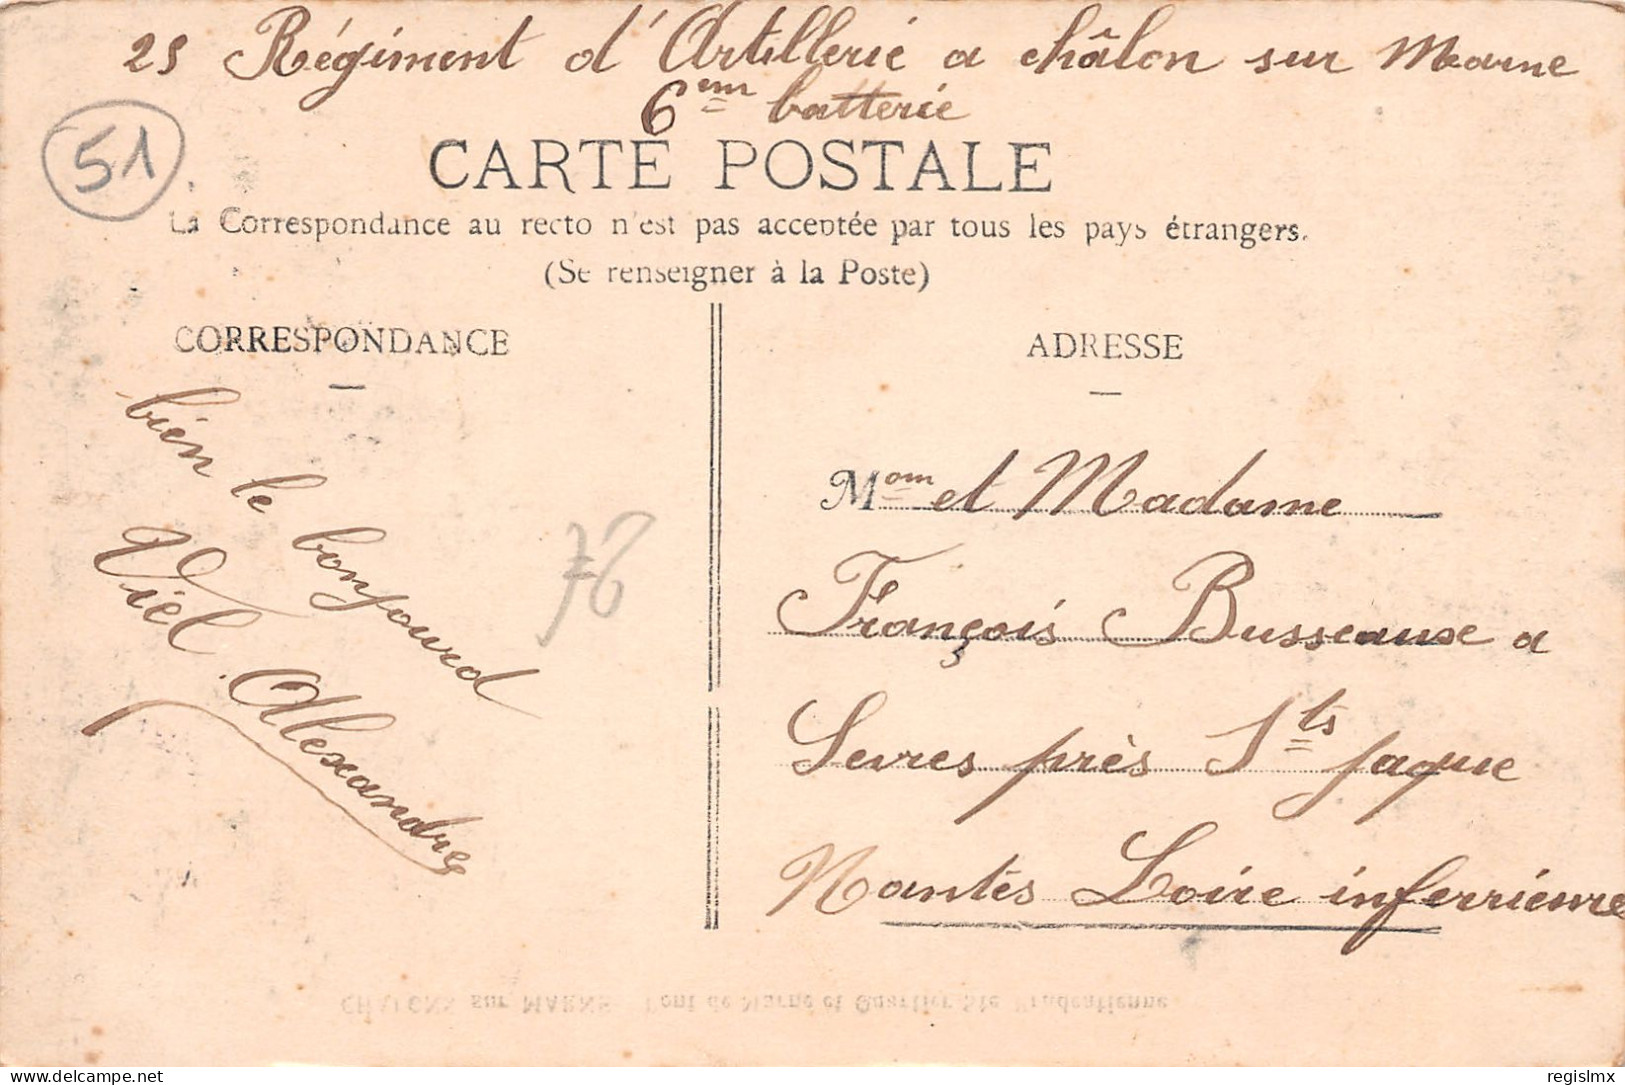 25 Régiment d'Artillerie a châlon sur Marne
6em batterie
51
CARTE POSTALE
La Correspondance au recto n'est pas acceptée par tous les pays étrangers.
(Se renseigner à la Poste)
CORRESPONDANCE
bien le bonjourd
Viel Alexandre
78
ADRESSE
Mom et Madame
François Busseause a
Sevres près Sts jaque
Nantes Loire inferrieure
CHALONS sur MARNE Pont de Marne et Quartier Ste Prudentienne
delcampe.net
regislmx